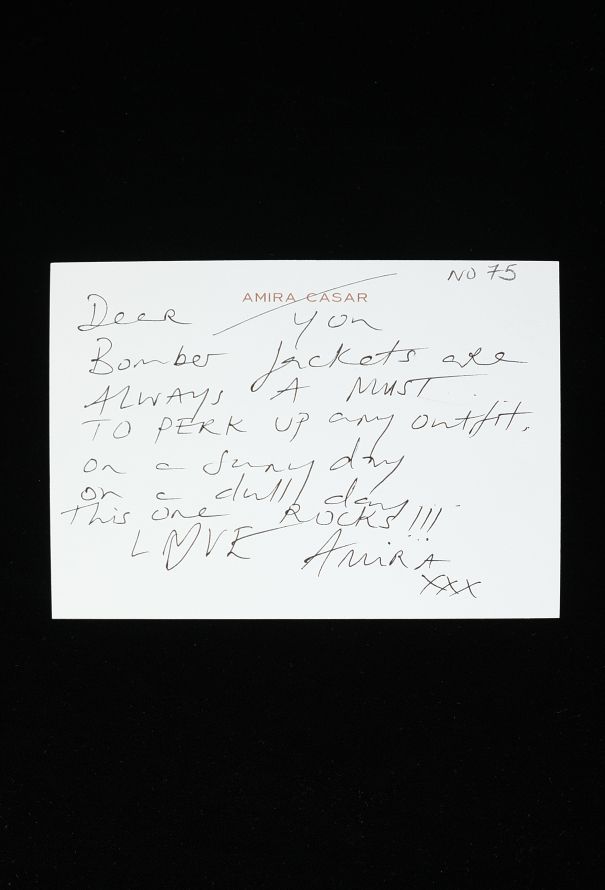 NO 75
AMIRA CASAR
Dear you
Bomber Jackets are
ALWAYS A MUST
TO PERK UP any outfit,
on a sunny day
on a dull day
this one ROCKS!!!
LOVE AMIRA
xxx